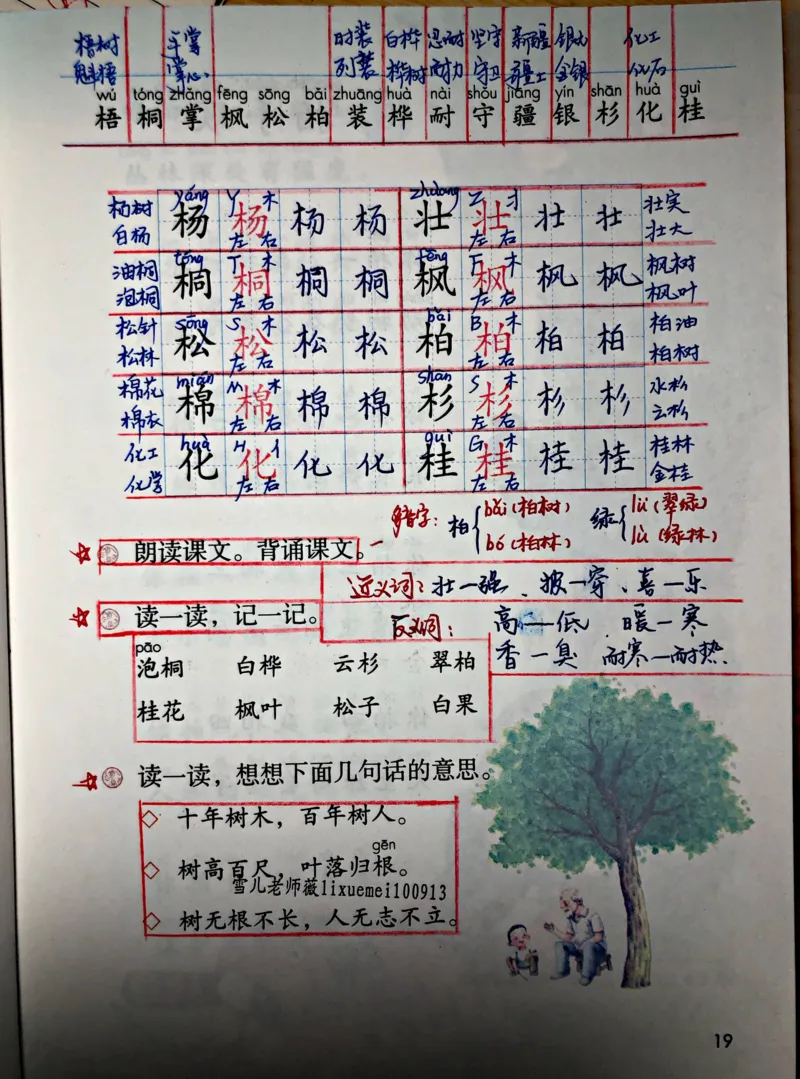 梧树 手掌 时装 白桦 忍耐 坚守 新疆 银儿 化工
魁梧 掌心 列装 桦树 耐力 守卫 疆土 金银 化石
wú tóng zhǎng fēng sōng bǎi zhuāng huà nài shǒu jiāng yín shān huà guì
梧 桐 掌 枫 松 柏 装 桦 耐 守 疆 银 杉 化 桂
yáng zhuàng
杨树 杨 Y 木 杨 左 右 杨 杨 壮 Z 丬 壮 左 右 壮 壮 壮实
白杨 壮大
tóng fēng
油桐 桐 T 木 桐 左 右 桐 桐 枫 F 木 枫 左 右 枫 枫 枫树
泡桐 枫叶
sōng bǎi
松针 松 S 木 松 左 右 松 松 柏 B 木 柏 左 右 柏 柏 柏油
松林 柏树
mián shān
棉花 棉 M 木 棉 左 右 棉 棉 杉 S 木 杉 左 右 杉 杉 水杉
棉衣 云杉
huà guì
化工 化 H 亻 化 左 右 化 化 桂 G 木 桂 左 右 桂 桂 桂林
化学 金桂
多音字: 柏 bǎi (柏树) bó (柏林) 绿 lǜ (翠绿) lù (绿林)
朗读课文。背诵课文。
近义词: 壮—强、披—穿、喜—乐
读一读，记一记。
反义词: 高—低 暖—寒
香—臭 耐寒—耐热.
pāo
泡桐 白桦 云杉 翠柏
桂花 枫叶 松子 白果
读一读，想想下面几句话的意思。
十年树木，百年树人。
gēn
树高百尺，叶落归根。
雪儿老师薇lixuemei100913
树无根不长，人无志不立。
19